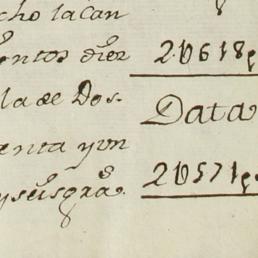 cho la Can
entos diez 2U618
la de Dos.
Data
enta y un
y seis gra^s. 2U571